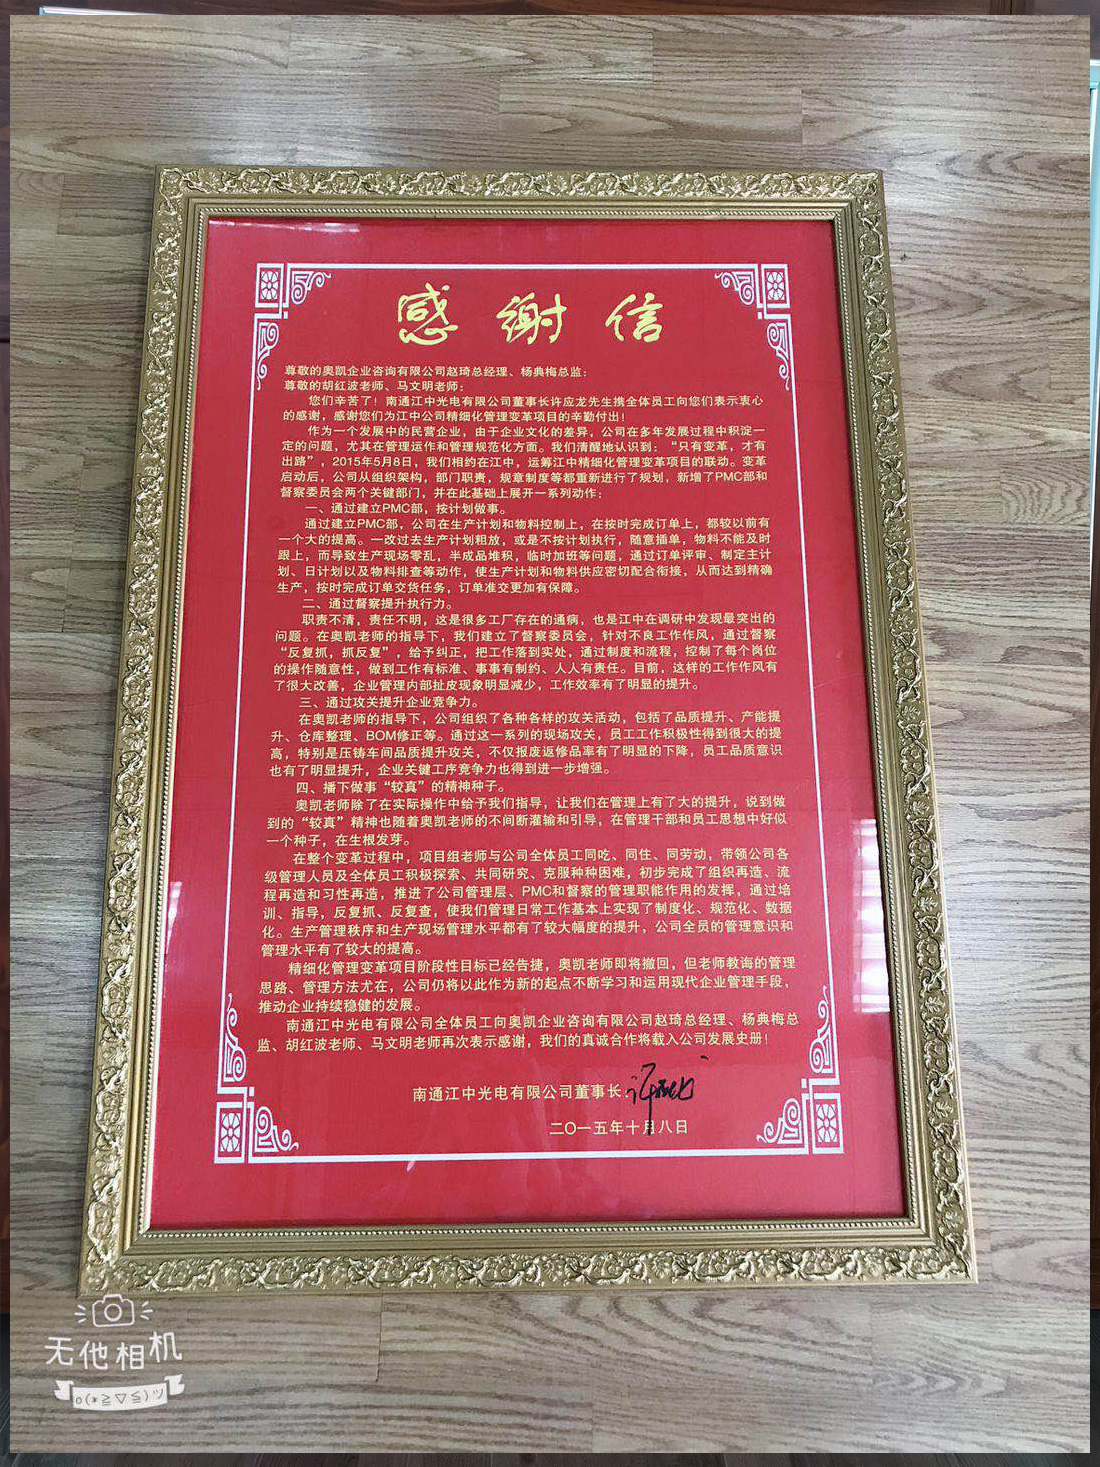 感谢信
尊敬的奥凯企业咨询有限公司赵琦总经理、杨典梅总监：
尊敬的胡红波老师、马文明老师：
您们辛苦了！南通江中光电有限公司董事长许应龙先生携全体员工向您们表示衷心
的感谢，感谢您们为江中公司精细化管理变革项目的辛勤付出！
作为一个发展中的民营企业，由于企业文化的差异，公司在多年发展过程中积淀一
定的问题，尤其在管理运作和管理规范化方面。我们清醒地认识到：“只有变革，才有
出路”，2015年5月8日，我们相约在江中，运筹江中精细化管理变革项目的联动。变革
启动后，公司从组织架构，部门职责，规章制度等都重新进行了规划，新增了PMC部和
督察委员会两个关键部门，并在此基础上展开一系列动作：
一、通过建立PMC部，按计划做事。
通过建立PMC部，公司在生产计划和物料控制上，在按时完成订单上，都较以前有
一个大的提高。一改过去生产计划粗放，或是不按计划执行，随意插单，物料不能及时
跟上，而导致生产现场零乱，半成品堆积，临时加班等问题，通过订单评审、制定主计
划、日计划以及物料排查等动作，使生产计划和物料供应密切配合衔接，从而达到精确
生产，按时完成订单交货任务，订单准交更加有保障。
二、通过督察提升执行力。
职责不清，责任不明，这是很多工厂存在的通病，也是江中在调研中发现最突出的
问题。在奥凯老师的指导下，我们建立了督察委员会，针对不良工作作风，通过督察
“反复抓，抓反复”，给予纠正，把工作落到实处，通过制度和流程，控制了每个岗位
的操作随意性，做到工作有标准、事事有制约、人人有责任。目前，这样的工作作风有
了很大改善，企业管理内部扯皮现象明显减少，工作效率有了明显的提升。
三、通过攻关提升企业竞争力。
在奥凯老师的指导下，公司组织了各种各样的攻关活动，包括了品质提升、产能提
升、仓库整理、BOM修正等。通过这一系列的现场攻关，员工工作积极性得到很大的提
高，特别是压铸车间品质提升攻关，不仅报废返修品率有了明显的下降，员工品质意识
也有了明显提升，企业关键工序竞争力也得到进一步增强。
四、播下做事“较真”的精神种子。
奥凯老师除了在实际操作中给予我们指导，让我们在管理上有了大的提升，说到做
到的“较真”精神也随着奥凯老师的不间断灌输和引导，在管理干部和员工思想中好似
一个种子，在生根发芽。
在整个变革过程中，项目组老师与公司全体员工同吃、同住、同劳动，带领公司各
级管理人员及全体员工积极探索、共同研究、克服种种困难，初步完成了组织再造、流
程再造和习性再造，推进了公司管理层、PMC和督察的管理职能作用的发挥，通过培
训、指导，反复抓、反复查，使我们管理日常工作基本上实现了制度化、规范化、数据
化。生产管理秩序和生产现场管理水平都有了较大幅度的提升，公司全员的管理意识和
管理水平有了较大的提高。
精细化管理变革项目阶段性目标已经告捷，奥凯老师即将撤回，但老师教诲的管理
思路、管理方法尤在，公司仍将以此作为新的起点不断学习和运用现代企业管理手段，
推动企业持续稳健的发展。
南通江中光电有限公司全体员工向奥凯企业咨询有限公司赵琦总经理、杨典梅总
监、胡红波老师、马文明老师再次表示感谢，我们的真诚合作将载入公司发展史册！
南通江中光电有限公司董事长：
二〇一五年十月八日
无他相机
o(*≧▽≦)ツ